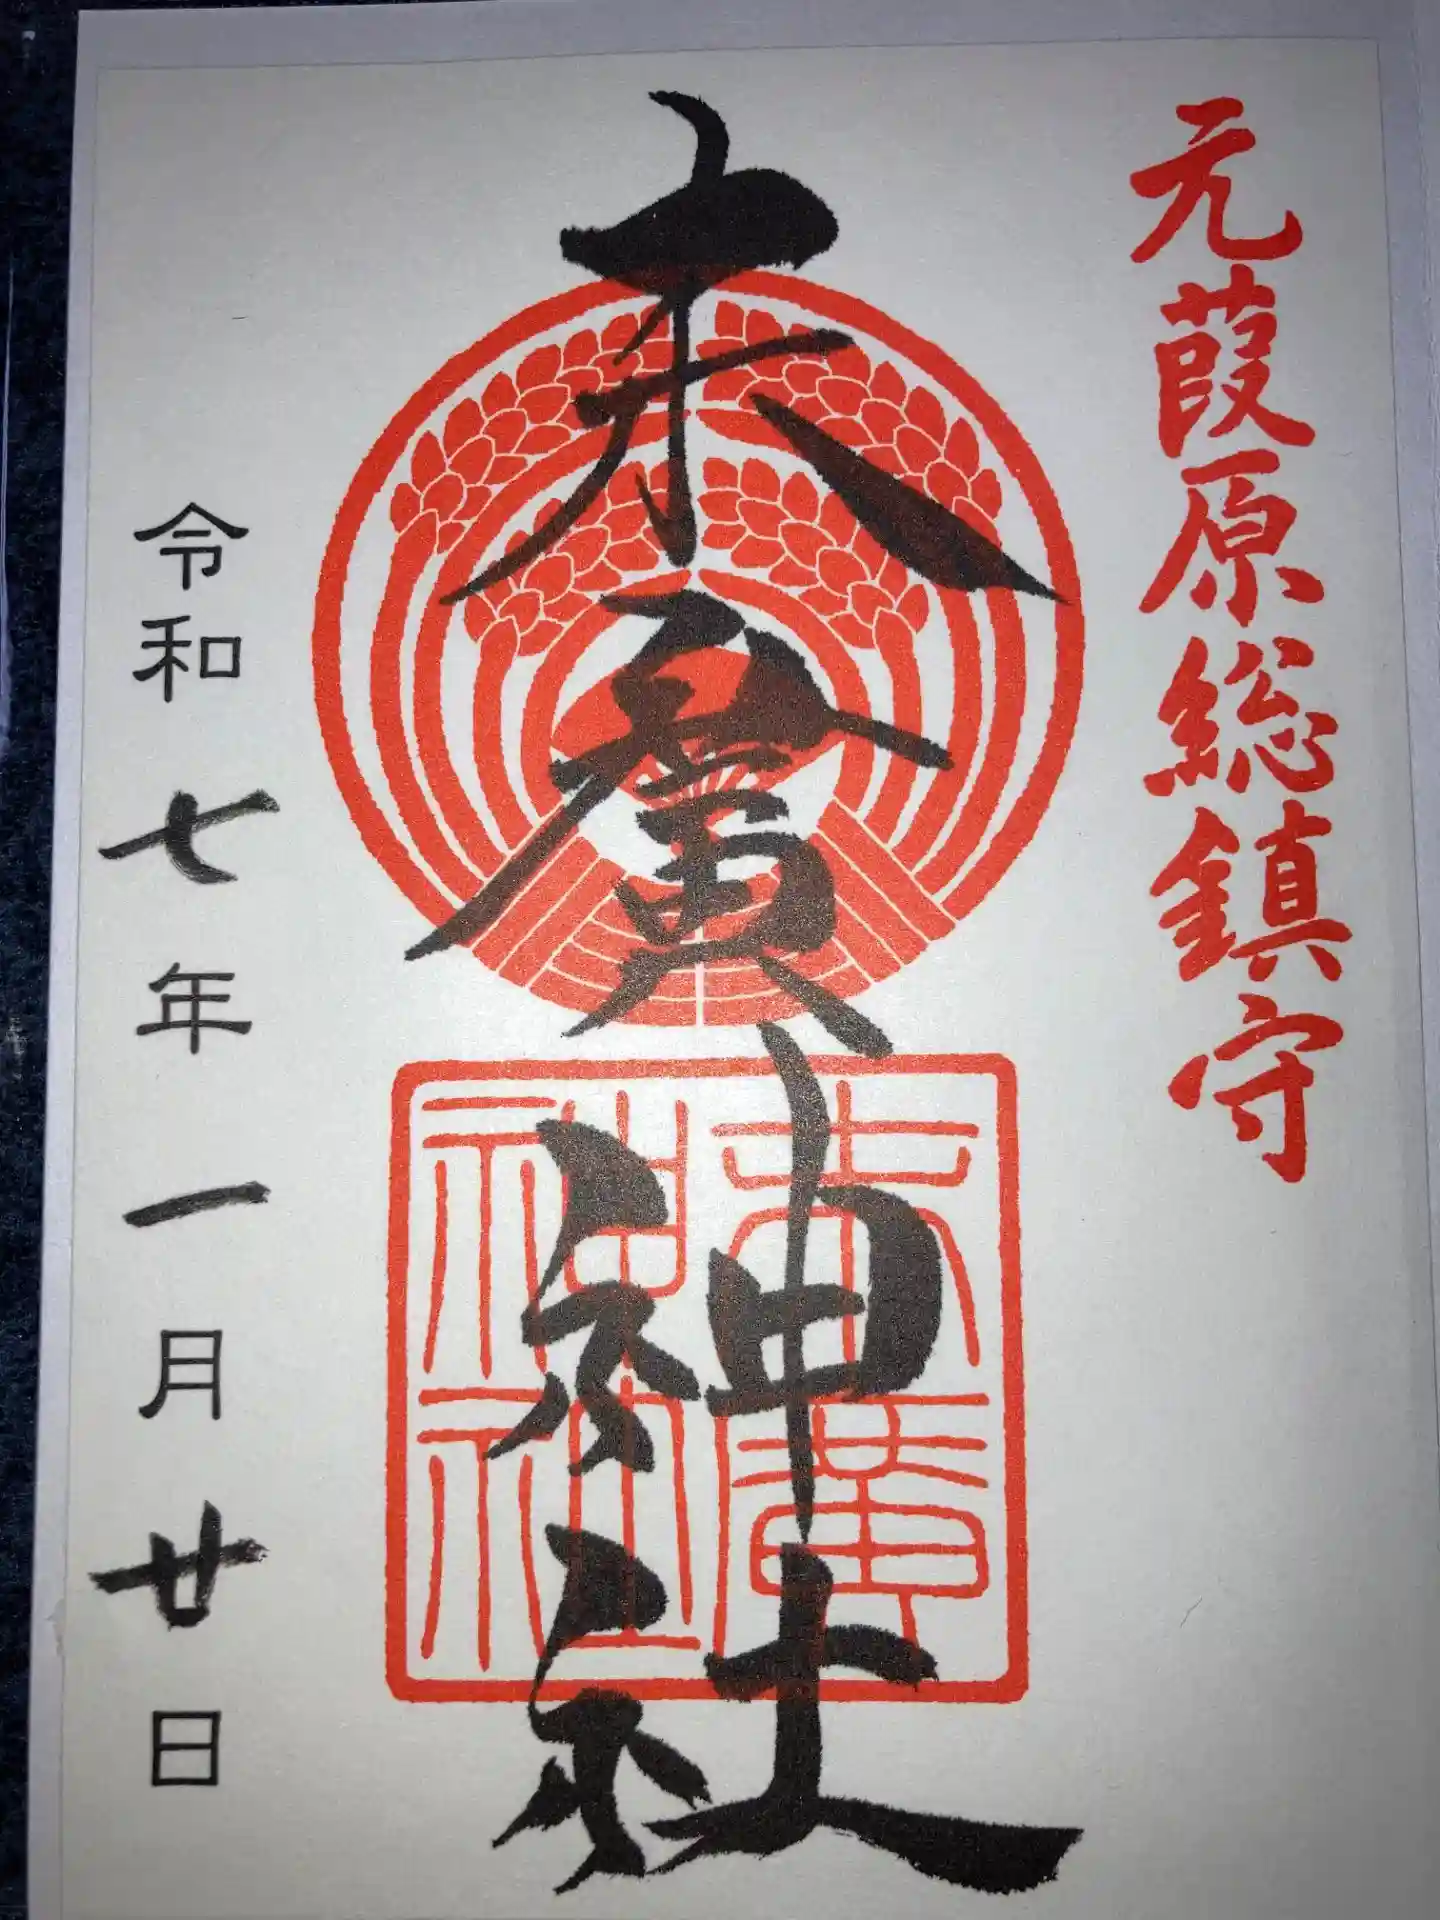 元葭原総鎮守
末廣神社
末廣神社
令和七年一月廿日